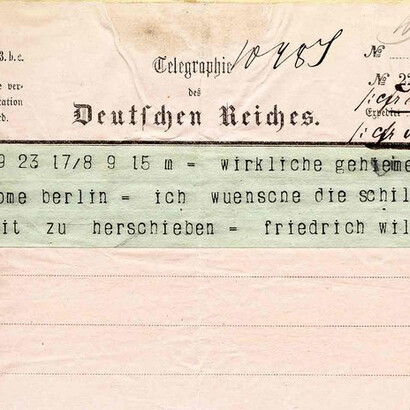 3. b.c.
Telegraphie 10985 №
e ver-
ication
ed.
des № 2
Deutschen Reiches.
9 23 17/8 9 15 m = wirkliche geheime
ome berlin = ich wuensche die schil
it zu herschieben = friedrich wil